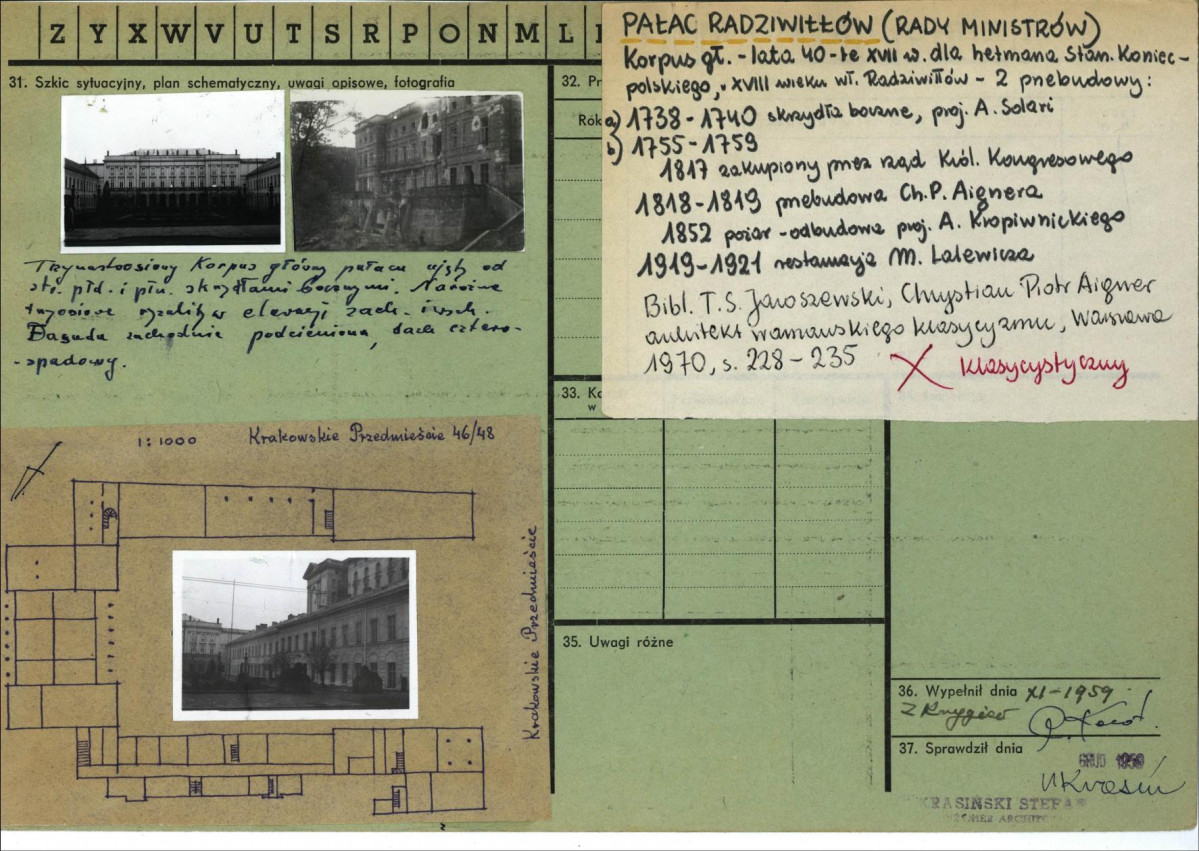 Z Y X W V U T S R P O N M L
31. Szkic sytuacyjny, plan schematyczny, uwagi opisowe, fotografia
Trzynastoosiowy korpus główny pałacu ujęty od
str. płd. i płn. skrzydłami bocznymi. Narożne
trzyosiowe ryzality w elewacji zach. i wsch.
Fasada zachodnia podcieniona, dach cztero-
-spadowy.
1:1000 Krakowskie Przedmieście 46/48
Krakowskie Przedmieście
32. Pr
Rok
PAŁAC RADZIWIŁŁÓW (RADY MINISTRÓW)
Korpus gł. - lata 40-te XVII w. dla hetmana Stan. Koniec-
polskiego, w XVIII wieku wł. Radziwiłłów - 2 przebudowy:
a) 1738-1740 skrzydła boczne, proj. A. Solari
b) 1755-1759
1817 zakupiony przez rząd Król. Kongresowego
1818-1819 przebudowa Ch. P. Aignera
1852 pożar - odbudowa proj. A. Kropiwnickiego
1919-1921 restauracja M. Lalewicza
Bibl. T.S. Jaroszewski, Chrystian Piotr Aigner
architekt warszawskiego klasycyzmu, Warszawa
1970, s. 228-235 X klasycystyczny
33. Ko
w
35. Uwagi różne
36. Wypełnił dnia XI-1959
37. Sprawdził dnia
GRUD 1959
KRASIŃSKI STEFA